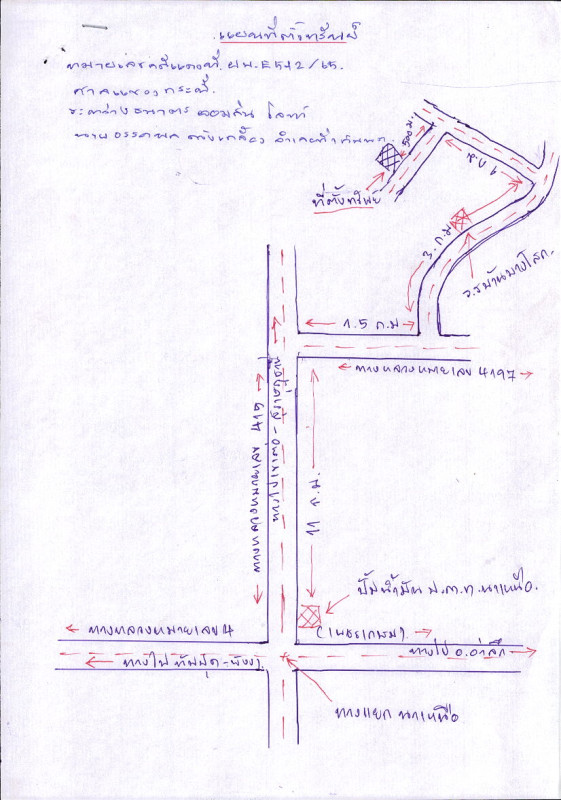 แผนที่ตั้งทรัพย์
หมายเลขคดีแดงที่ ผบ.E542/65.
ศาลแขวงกระบี่
ระหว่าง ธนาคาร ออมสิน โจทก์
นาย
500 ม.
ที่ตั้งทรัพย์
1 ก.ม
3. ก.ม
ร.ร บ้านบางโสก.
1.5 ก.ม
ทางหลวงหมายเลข 4197
ทางหลวงหมายเลข 415
11 ก.ม.
ปั้มน้ำมัน ป.ต.ท. นาเหนือ.
ทางหลวงหมายเลข 4
(เพชรเกษม).
ทางไป ทับปุด-พังงา
ทางไป อ.อ่าวลึก
ทางแยก นาเหนือ